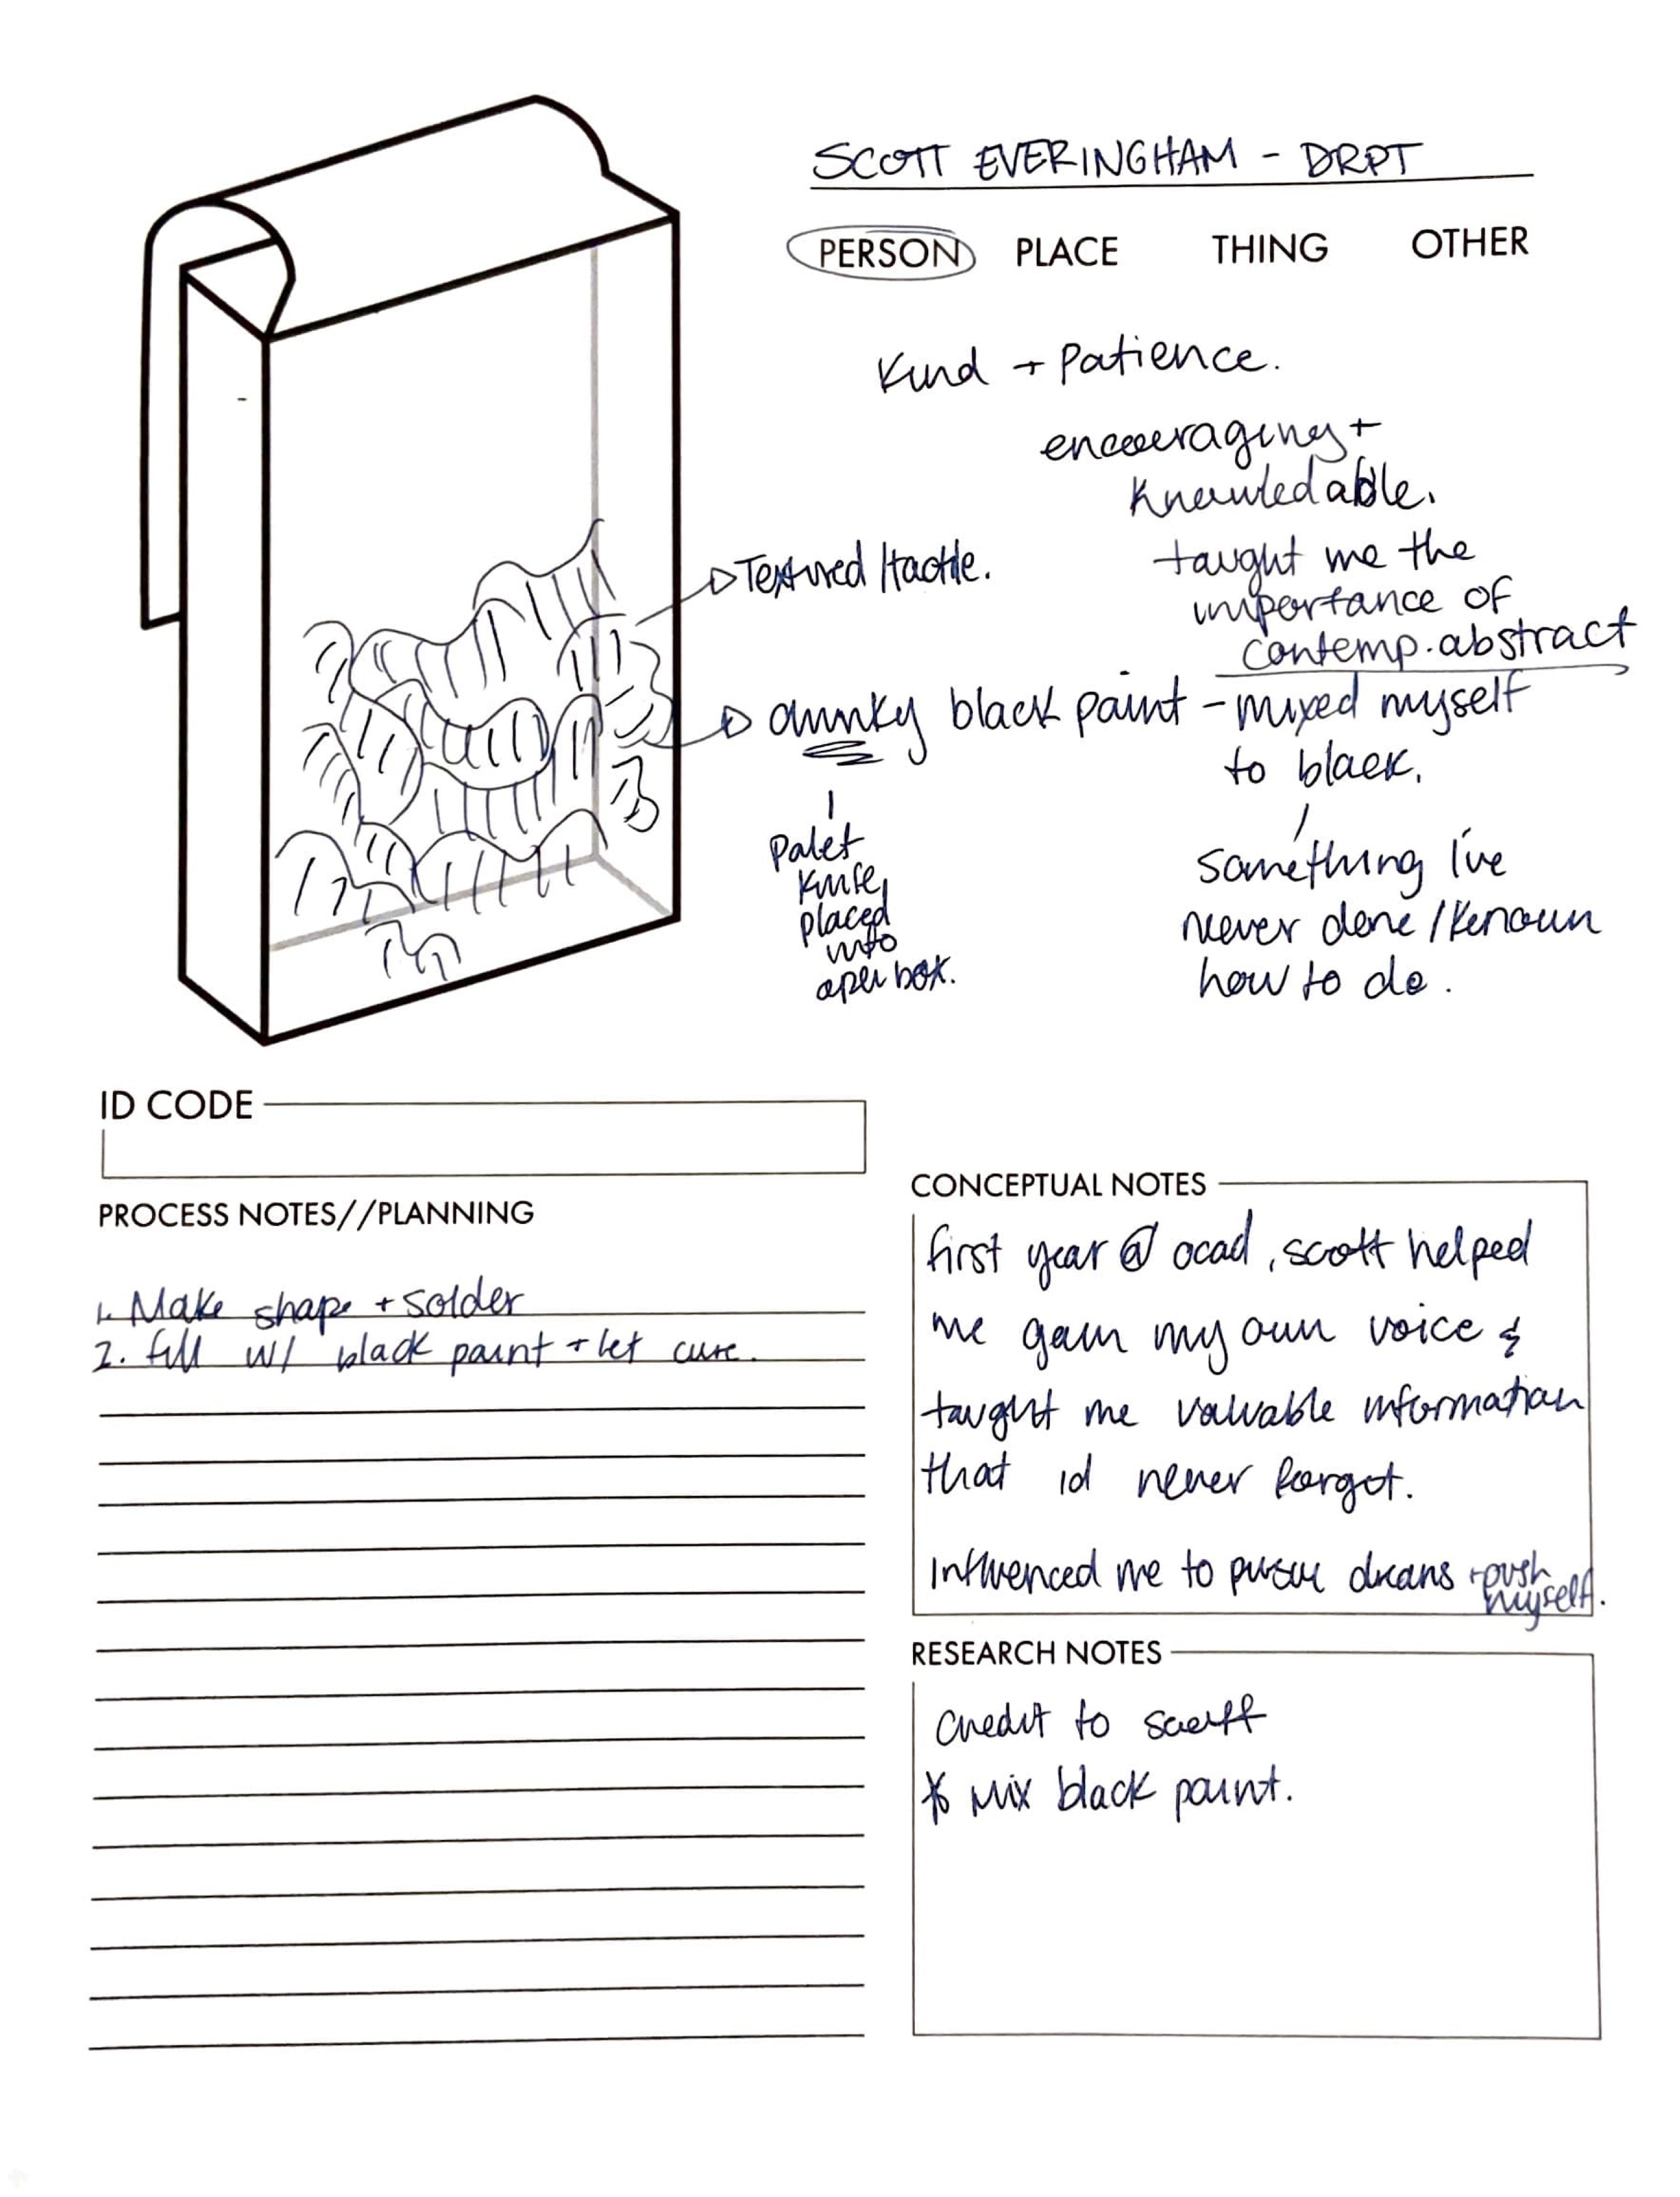 SCOTT EVERINGHAM - DRPT
PERSON PLACE THING OTHER
Kind + Patience.
encouraging +
Knowledable.
taught me the
importance of
contemp. abstract
→ Textured/tactile.
→ chunky black paint - mixed myself
to black.
Palet
knife,
placed
into
open box.
something I've
never done/known
how to do.
ID CODE
PROCESS NOTES//PLANNING
1. Make shape + solder
2. fill w/ black paint + let cure.
CONCEPTUAL NOTES
first year @ ocad, scott helped
me gain my own voice &
taught me valuable information
that id never forgot.
Influenced me to pursue dreams + push
myself.
RESEARCH NOTES
Credit to scott
* Mix black paint.